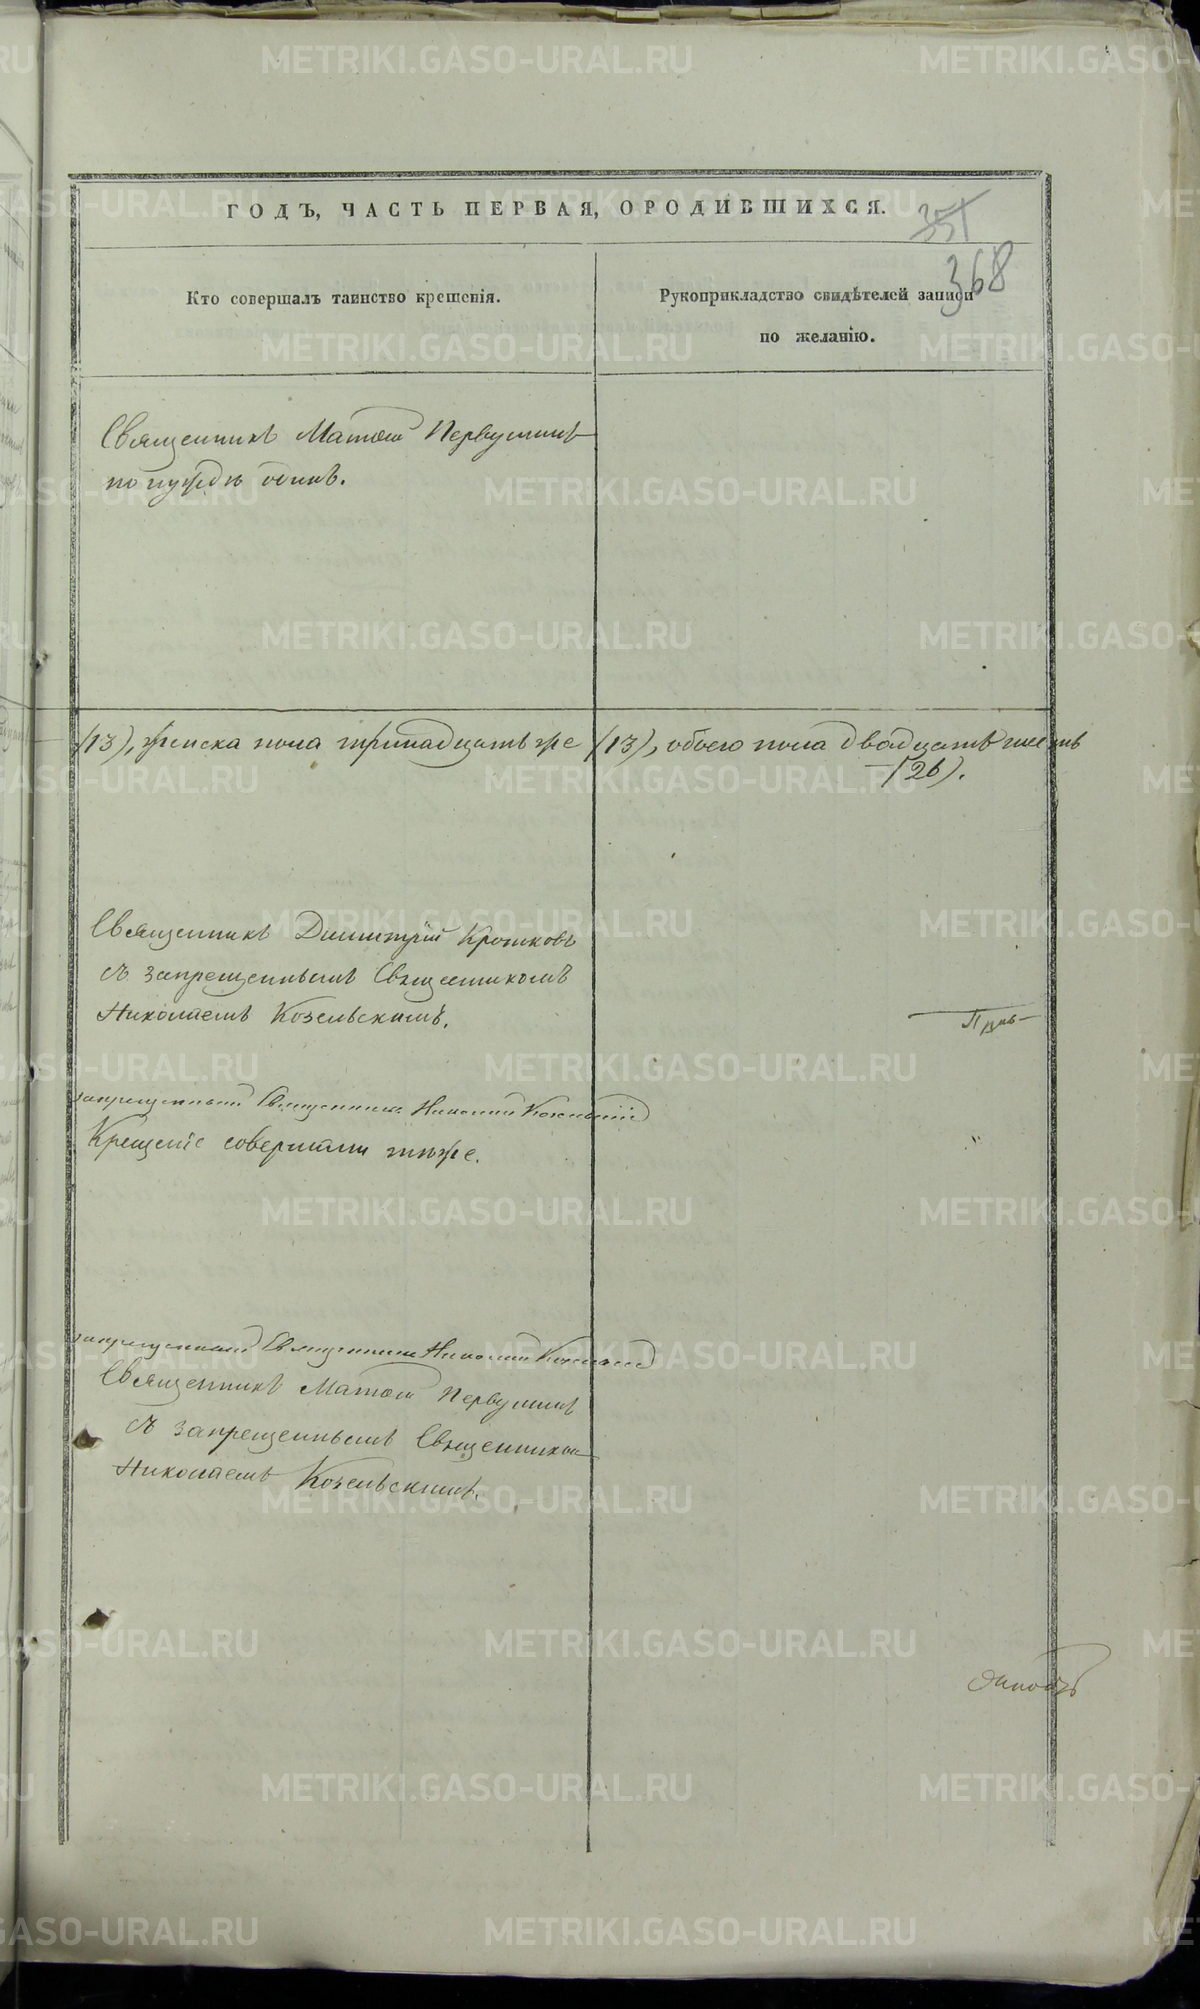 ГОДЪ, ЧАСТЬ ПЕРВАЯ, ОРОДИВШИХСЯ.
351
368
Кто совершалъ таинство крещенія.
Рукоприкладство свидѣтелей записи
по желанію.
Священникъ Матѳей Первушинъ
по нуждѣ одинъ.
(13), женска пола тринадцать же (13), обоего пола двадцать шесть
(26).
Священникъ Димитрій Кротковъ
съ запрещеннымъ Священникомъ
Николаемъ Козельскимъ.
запрещенный Священникъ Николай Козельскій
Крещеніе совершали тѣже.
запрещенный Священникъ Николай Козельскій
Священникъ Матѳей Первушинъ
съ запрещеннымъ Священником
Николаемъ Козельскимъ.
METRIKI.GASO-URAL.RU